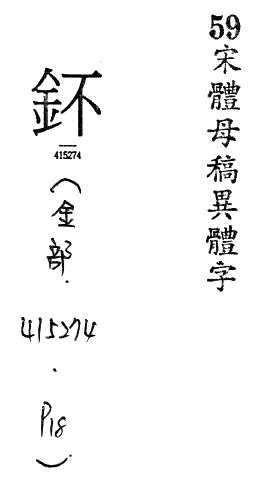 59宋體母稿異體字
鈈
415274
(金部.
415274
.
P18
)